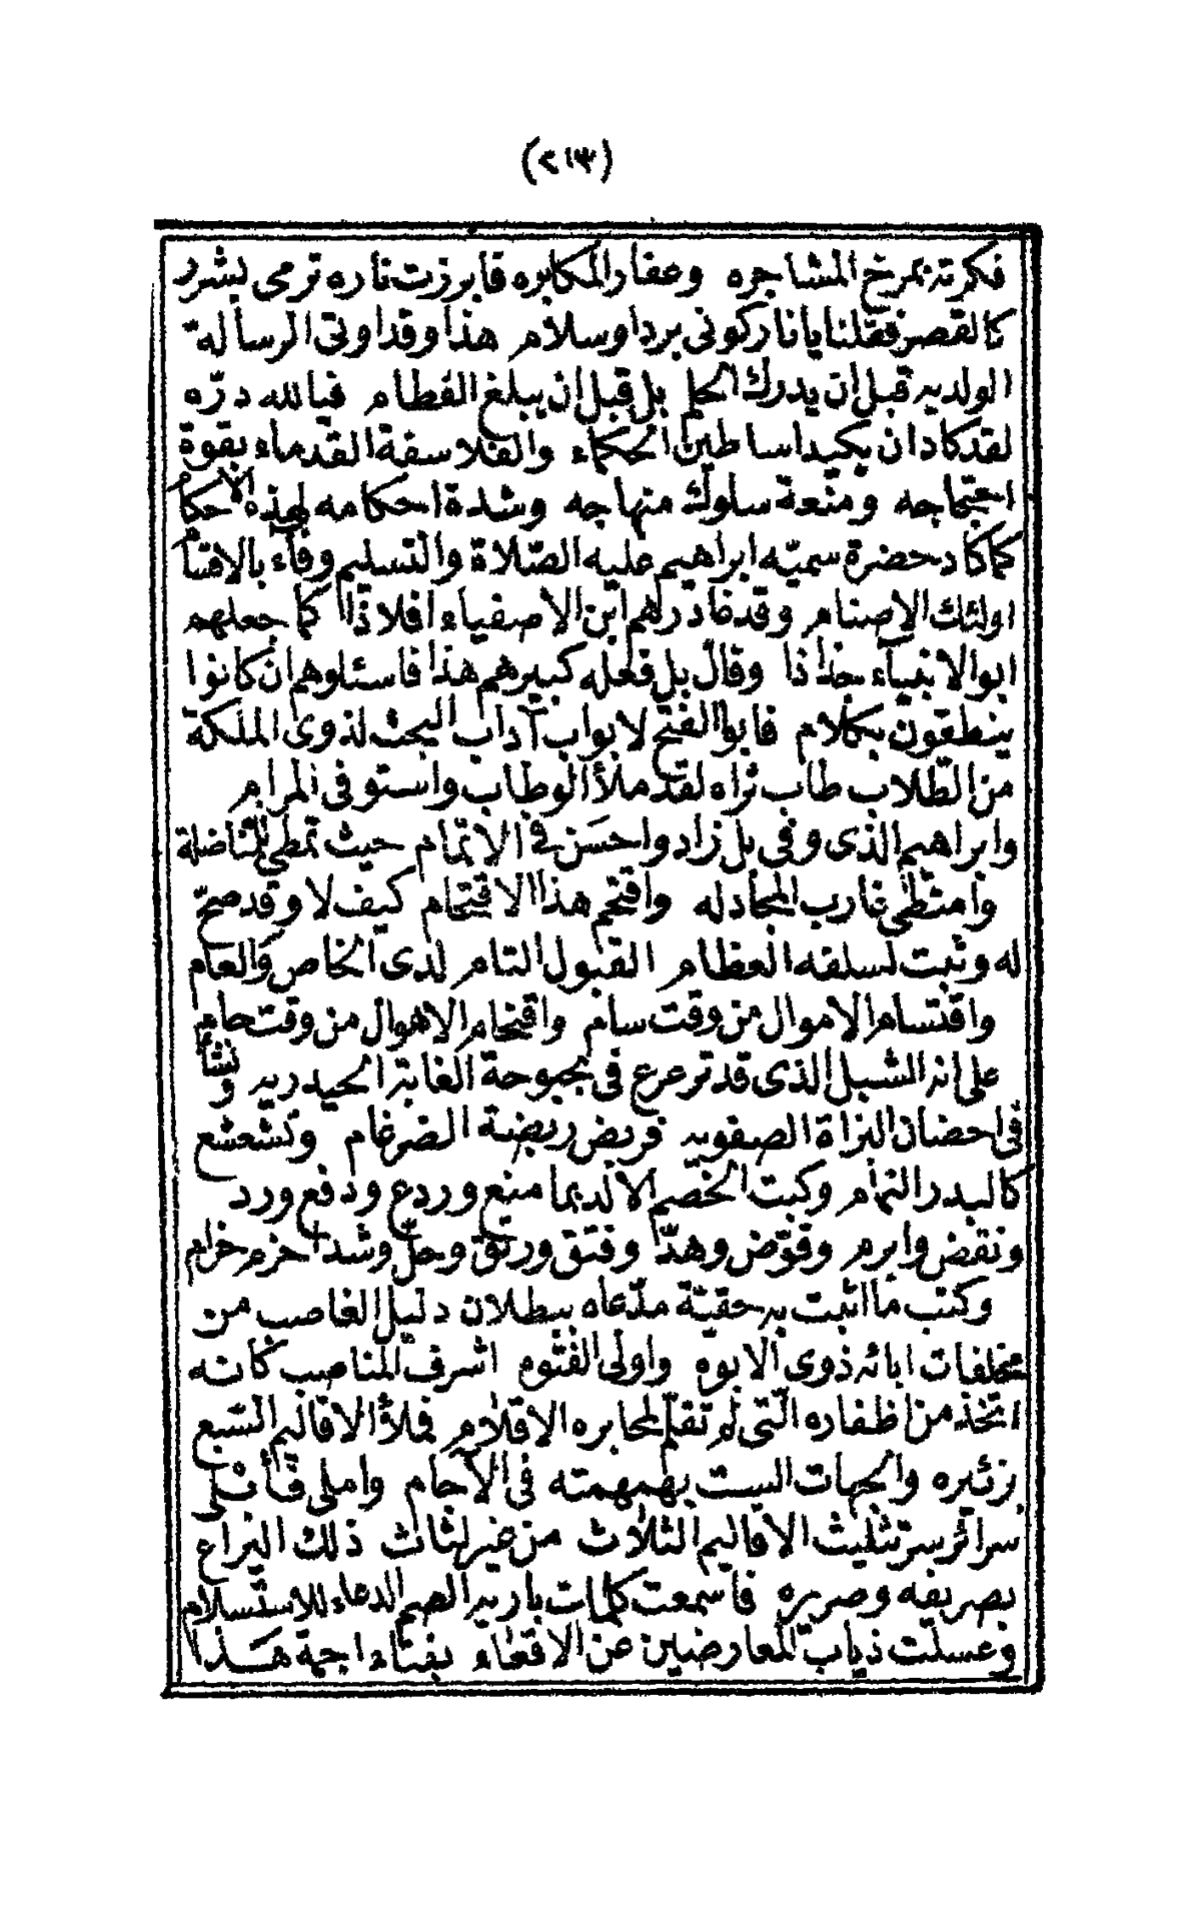 (٢١٣)
فكرته بمرخ المشاجره وعفار المكابره قابرزت ناره ترمى بشرر
كالقصر فقلنا يا نار كونى بردا وسلام هذا وقد اوتى الرساله
الولديه قبل ان يدرك الحلم بل قبل ان يبلغ الفطام فيالله درّه
لقد كاد ان يكيد اساطين الحكماء والفلاسفة القدماء بقوة
احتجاجه ومتعة سلوك منهاجه وشدة احكامه لهذه الأحكام
كما كاد حضرة سميّه ابراهيم عليه الصّلاة والتسليم وفآء بالاقسام
اولئك الاصنام وقد غادرهم ابن الاصفياء افلاذا كما جعلهم
ابو الانبيآء جذاذا وقال بل فعله كبيرهم هذا فاسئلوهم ان كانوا
ينطقون بكلام فابو الفتح لابواب آداب البحث لذوى الملكة
من الطّلاب طاب ثراه لقد ملأ الوطاب واستوفى المرام
وابراهيم الذى وفى بل زاد واحسن فى الاتمام حيث تمطى للمناضلة
وامتطى غارب المجادله واقتحم هذا الاقتحام كيف لا وقد صحّ
له وثبت لسلفه العظام القبول التام لدى الخاص والعام
واقتسام الاموال من وقت سام واقتحام الاهوال من وقت حام
على انه الشبل الذى قد ترعرع فى بحبوحة الغابة الحيدريه ونشأ
فى احضان البزاة الصفويه فربض ربضة الضرغام وتشعشع
كالبدر التمام وكبت الخصم الالد بما منع وردع ودفع ورد
ونقض وابرم وقوّض وهدّ وفتق ورتق وحلّ وشد احزم حزام
وكتب ما اثبت به حقيّة مدّعاه ببطلان دليل الغاصب من
مخلفات ابائه ذوى الابوه واولى الفتوم اشرف المناصب كانه
اتخذ من اظفاره التى لم تقلّم لمحابره الاقلام فملأ الاقاليم السبع
بزئيره والجهات الست بهمهمته فى الآجام واملى فأنلى
سرائر سر تثليث الاقاليم الثلاث من غير لثاث ذلك اليراع
بصريفه وصريره فاسمعت كلمات باريه الصم الدعاء للاستسلام
وعسلت ذياب المعارضين عن الاقعاء بفناء اجمة هذا